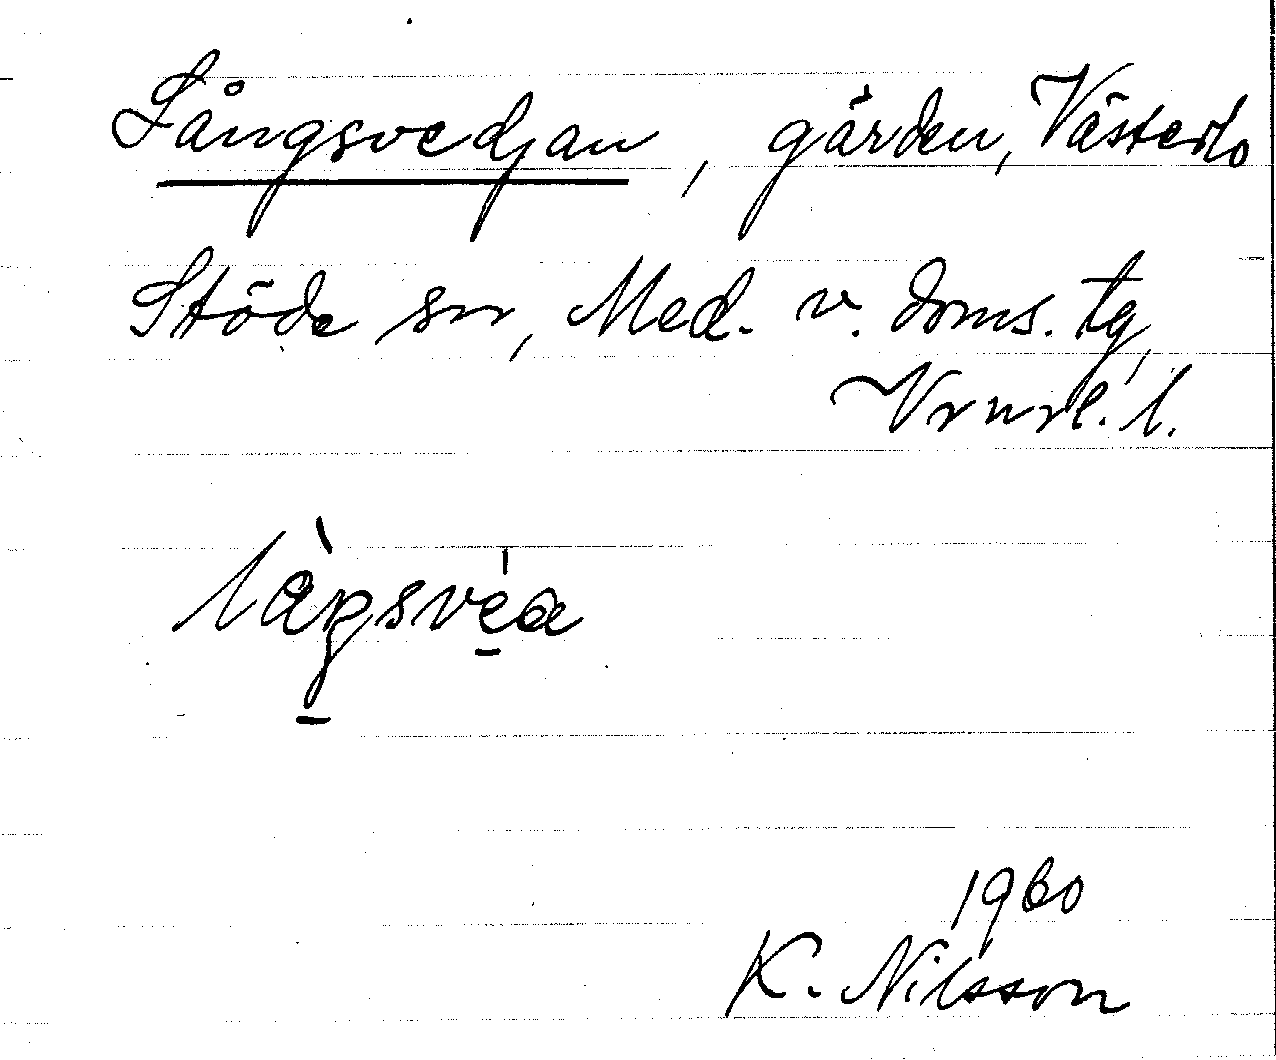 Långsvedjan, gården, Västerlo
Stöde sn, Med. v. doms. tg,
Vrnrl. l.
1960
K. Nilsson